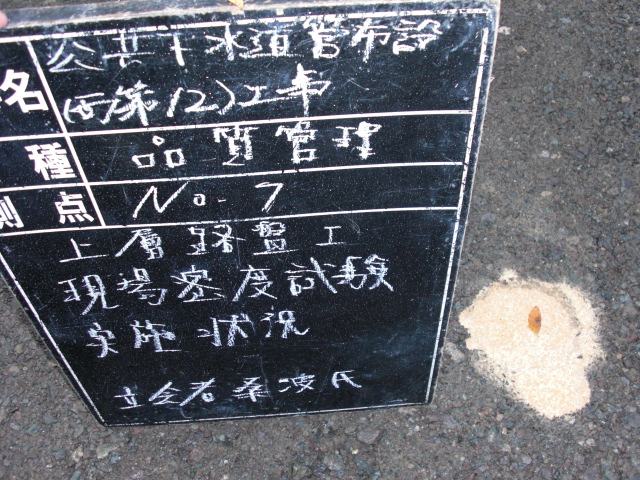 名 公共下水道管布設
(西第12)工事
種 品質管理
測点 No. 7
上層路盤工
現場密度試験
実施状況
立会者 桑波氏